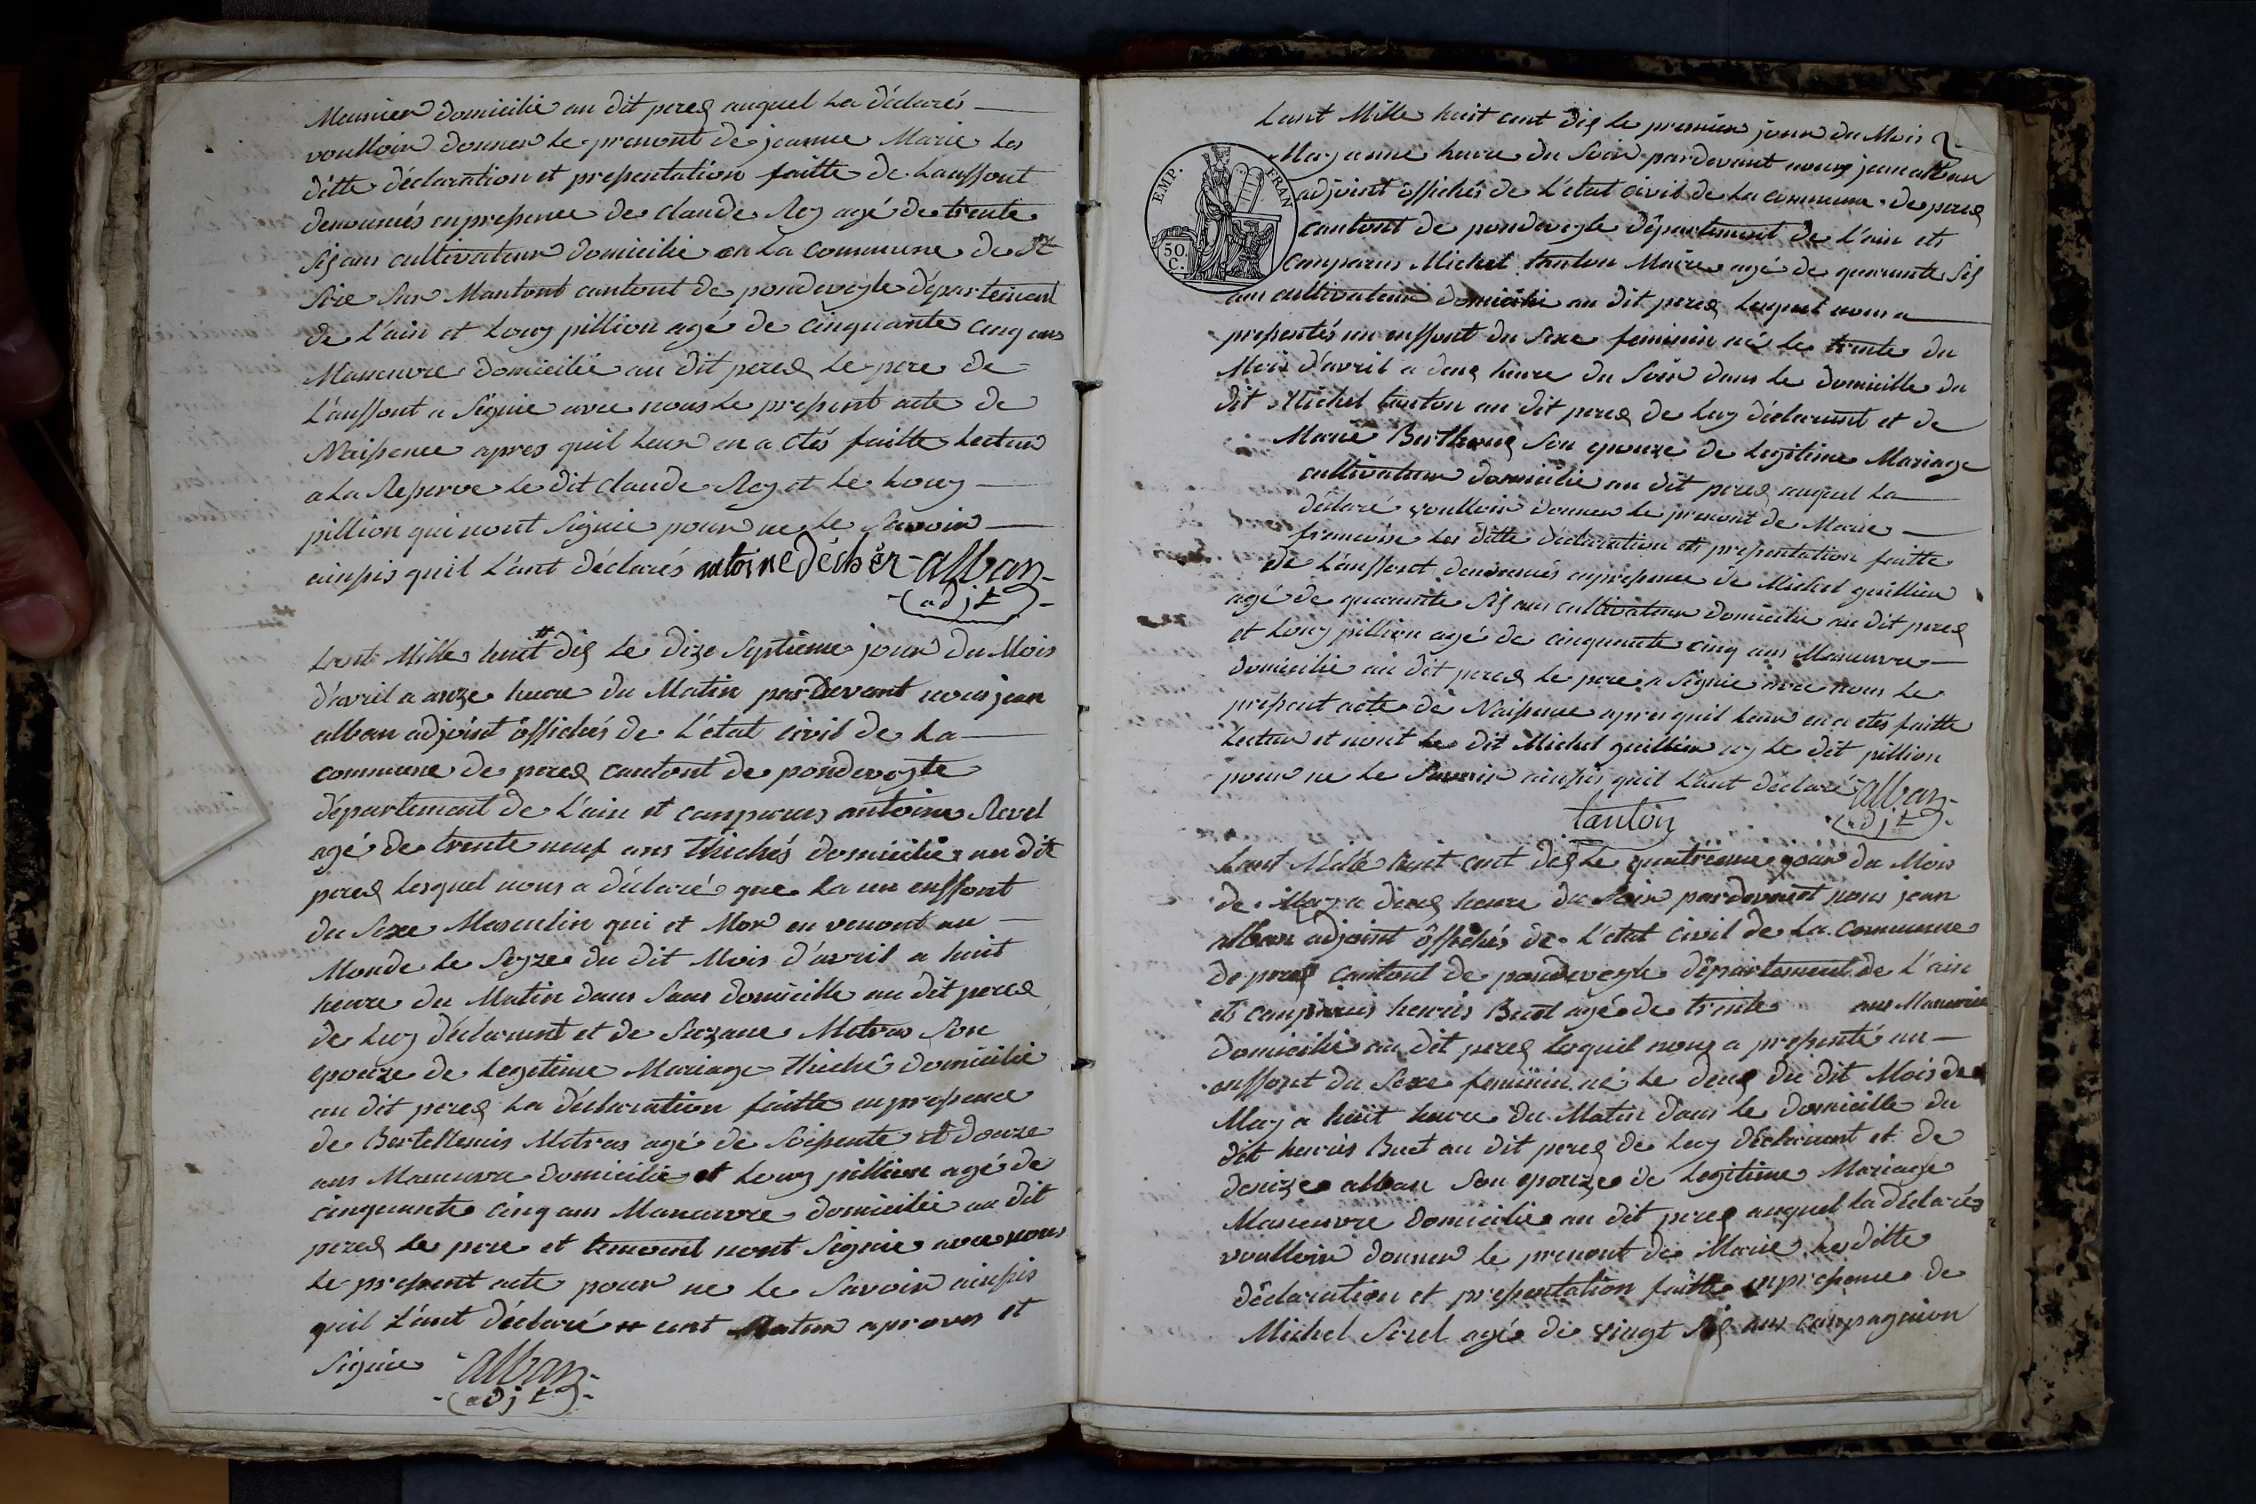 Meunier domicilié au dit perex auquel La déclarés
voulloir donner le prenont de jeanne Marie Les
ditte déclaration et presentation faitte de Lanffont
denoumés enpresence de claude Rey agé de trente
six ans cultivateur domicilie en La commune de St
Sire Sur Mantont cantont de pondeveyle département
de L'ain et Louy pillion agé de cinquante cinq ans
Maneuvre domicilié au dit perex Le pere de
L'anffont a Signie avec nous Le present acte de
Naissence apres quil Leur en a etés faitte Lecteur
a La Reserve Le dit claude Rey et Le Louy
pillion qui nont Signie pour ne Le Savoir
ainssis quil L'ant déclarés antoine déchèr alban
adjt
Lant Mille huit tt dix Le dize Septieme jour du Mois
d'avril a onze heure du Matin pardevant nous jean
alban adjoint offichés de L'état civil de La
commune de perex cantont de pondeveyle
département de L'ain et canparus antoine Revel
agé de trente neuf ans thichés domicilié au dit
perex Lesquel nous a déclaré que La un enffont
du Sexe Masculin qui et Mor en venont au
Monde Le Seyze du dit Mois d'avril a huit
heure du Matin dans Sans domicille au dit perex
de Luy déclarant et de Suzane Matras Son
epouze de Legetime Mariage thiché domicilie
au dit perex La déclaration faitte enpresence
de Bertellemis Matras agé de Soissente et douze
ans Maneuvre domicilie et Louy pillion agé de
cinquante cinq ans Maneuvre domicilie au dit
perex Le pere et temoint nont Signie avec nous
Le present acte pour ne Le Savoir ainssis
quil L'ant déclaré tt cent aprouvs et
Signie alban
adjt
EMP. FRAN
50 C.
Lant Mille huit cent dix le premier jour du Mois de
May a une heure du Soir pardevant nous jean alban
adjoint offichés de L'état civil de La commune de perex
cantont de pondeveyle département de L'ain et
canparus Michel tanton Maire agé de quarante Six
ans cultivateur domicilie au dit perex Lequel nous a
presentés un enffont du Sexe feminin né le trente du
Mois d'avril a deux heure du Soir dans Le domicille du
dit Michel tanton au dit perex de Luy déclarant et de
Marie Berthoux Son epouze de Legitime Mariage
cultivateur domicilie au dit perex auquel La
déclaré voulloir donner Le prenont de Marie
francoise Les ditte déclaration et presentation faitte
de L'anffont denoumés enpresence de Michel guillin
agé de quarante Six ans cultivateur domicilie au dit perex
et Louy pillion agé de cinquante cinq ans Maneuvre
domicilie au dit perex Le pere a Signie avec nous Le
present acte de Naissence apres quil Leur en a etés faitte
Lecteur et nont Le dit Michel guillin ny Le dit pillion
pour ne Le Savoir ainssis quil L'ant déclaré alban
tanton adjt
Lant Mille huit cent dix Le quatrieme jour du Mois
de May a deux heure du Soir pardevant nous jean
alban adjoint offichés de L'état civil de La commune
de perex cantont de pondeveyle département de L'ain
et canparus henris Buet agé de trente ans Maneuvre
domicilie au dit perex Lesquel nous a presenté un
enffont du Sexe feminin né Le deux du dit Mois de
May a huit heure du Matin dans Le domicille du
dit henris Buet au dit perex de Luy déclarant et de
denize alban Son epouze de Legitime Mariage
Maneuvre domicilie au dit perex auquel La déclarés
voulloir donner le prenont de Marie Les ditte
déclaration et presentation faitte enpresence de
Michel Serel agé de vingt Six ans canpagnion